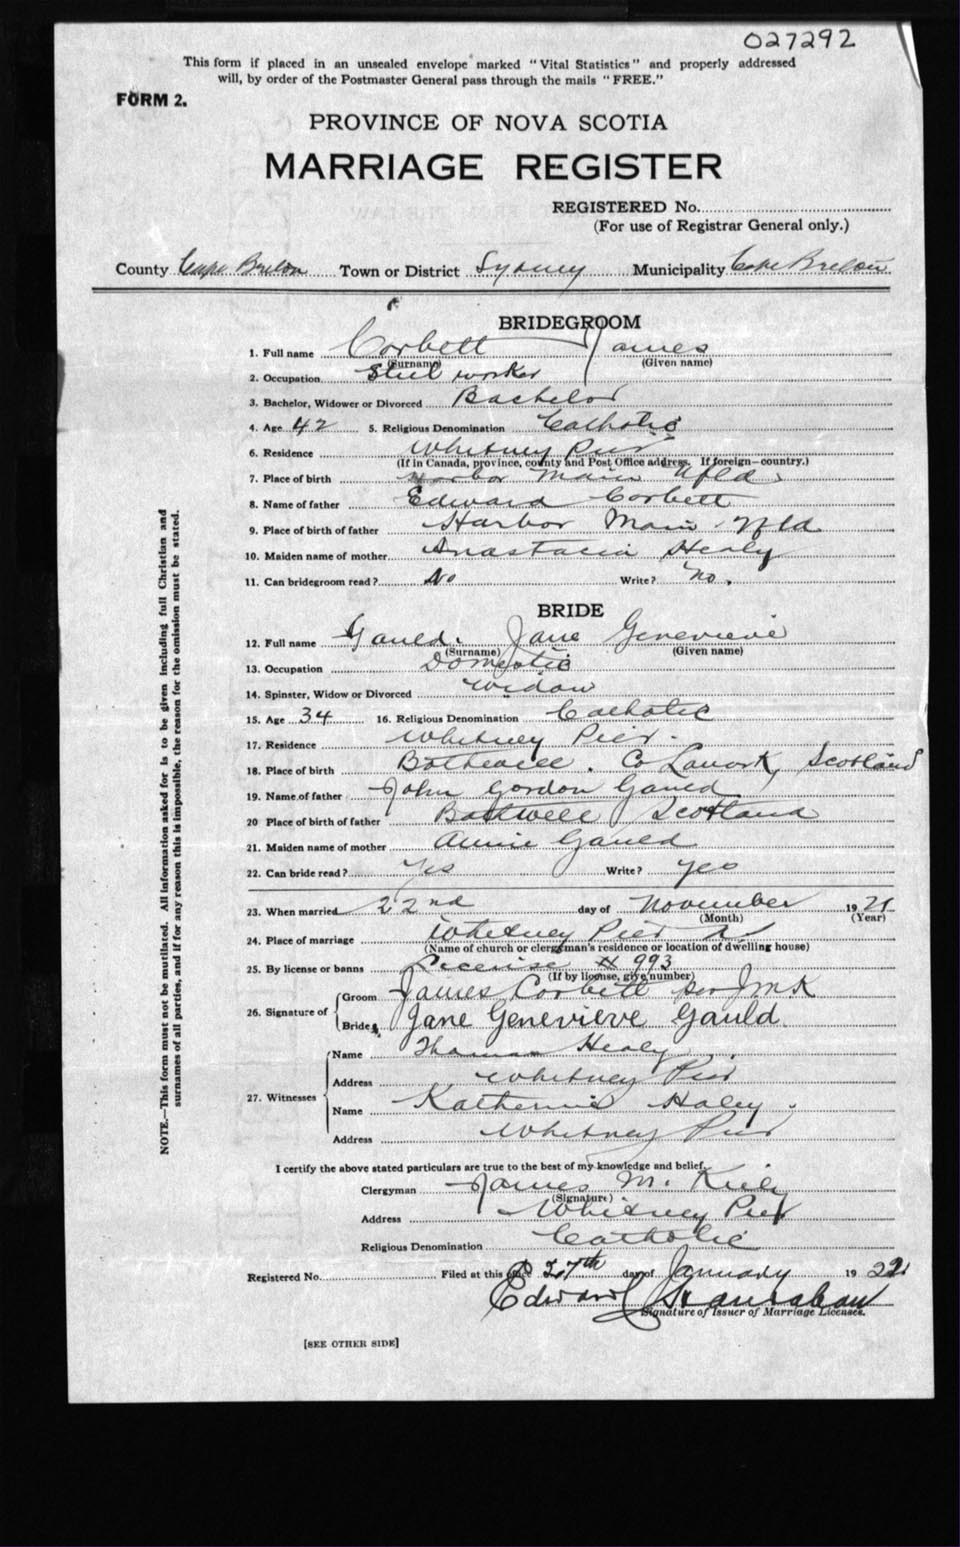 027292
This form if placed in an unsealed envelope marked "Vital Statistics" and properly addressed
will, by order of the Postmaster General pass through the mails "FREE."
FORM 2.
PROVINCE OF NOVA SCOTIA
MARRIAGE REGISTER
REGISTERED No.
(For use of Registrar General only.)
County Cape Breton Town or District Sydney Municipality Cape Breton
BRIDEGROOM
1. Full name Corbett James
(Surname) (Given name)
2. Occupation Steel worker
3. Bachelor, Widower or Divorced Bachelor
4. Age 42 5. Religious Denomination Catholic
6. Residence Whitney Pier
(If in Canada, province, county and Post Office address. If foreign—country.)
7. Place of birth Harbor Main Nfld
8. Name of father Edward Corbett
9. Place of birth of father Harbor Main Nfld
10. Maiden name of mother Anastacia Healy
11. Can bridegroom read? No Write? No.
BRIDE
12. Full name Gauld. Jane Genevieve
(Surname) (Given name)
13. Occupation Domestic
14. Spinster, Widow or Divorced Widow
15. Age 34 16. Religious Denomination Catholic
17. Residence Whitney Pier.
18. Place of birth Bothwell. Co Lanark, Scotland
19. Name of father John Gordon Gauld
20 Place of birth of father Bothwell Scotland
21. Maiden name of mother Annie Gauld
22. Can bride read? Yes Write? Yes
23. When married 22nd day of November 1921
(Month) (Year)
24. Place of marriage Whitney Pier
(Name of church or clergyman's residence or location of dwelling house)
25. By license or banns License # 993
(If by license, give number)
26. Signature of Groom James Corbett per JMK
Bride Jane Genevieve Gauld.
27. Witnesses Name Thomas Healy
Address Whitney Pier
Name Katherine Haley.
Address Whitney Pier
I certify the above stated particulars are true to the best of my knowledge and belief.
Clergyman James M. Kiely
(Signature)
Address Whitney Pier
Religious Denomination Catholic
Registered No. Filed at this office 27th day of January 1922
Edward
Signature of Issuer of Marriage Licenses.
[SEE OTHER SIDE]
NOTE.—This form must not be mutilated. All information asked for is to be given including full Christian and
surnames of all parties, and if for any reason this is impossible, the reason for the omission must be stated.